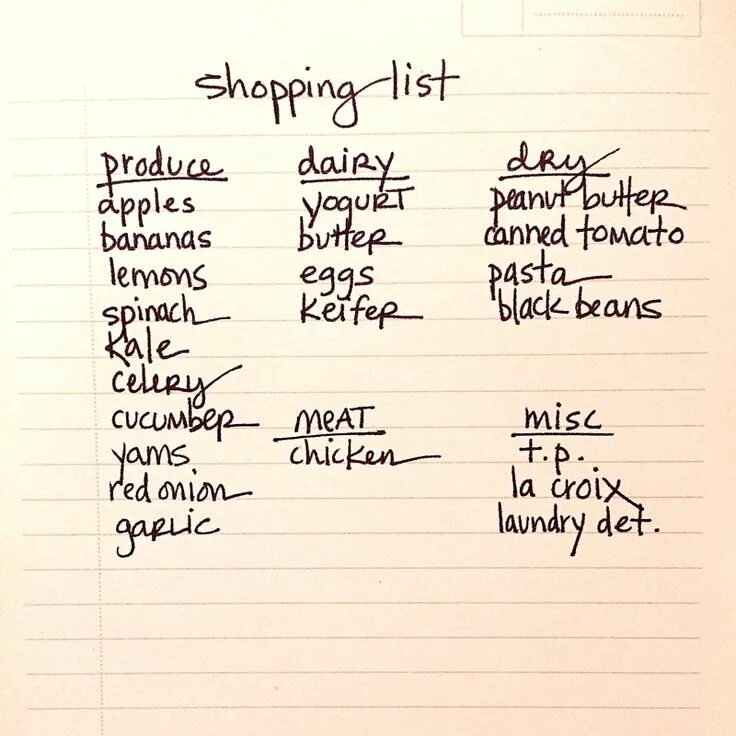 shopping list
produce
apples
bananas
lemons
spinach
kale
celery
cucumber
yams
red onion
garlic
dairy
yogurt
butter
eggs
keifer
meat
chicken
dry
peanut butter
canned tomato
pasta
black beans
misc
t.p.
la croix
laundry det.